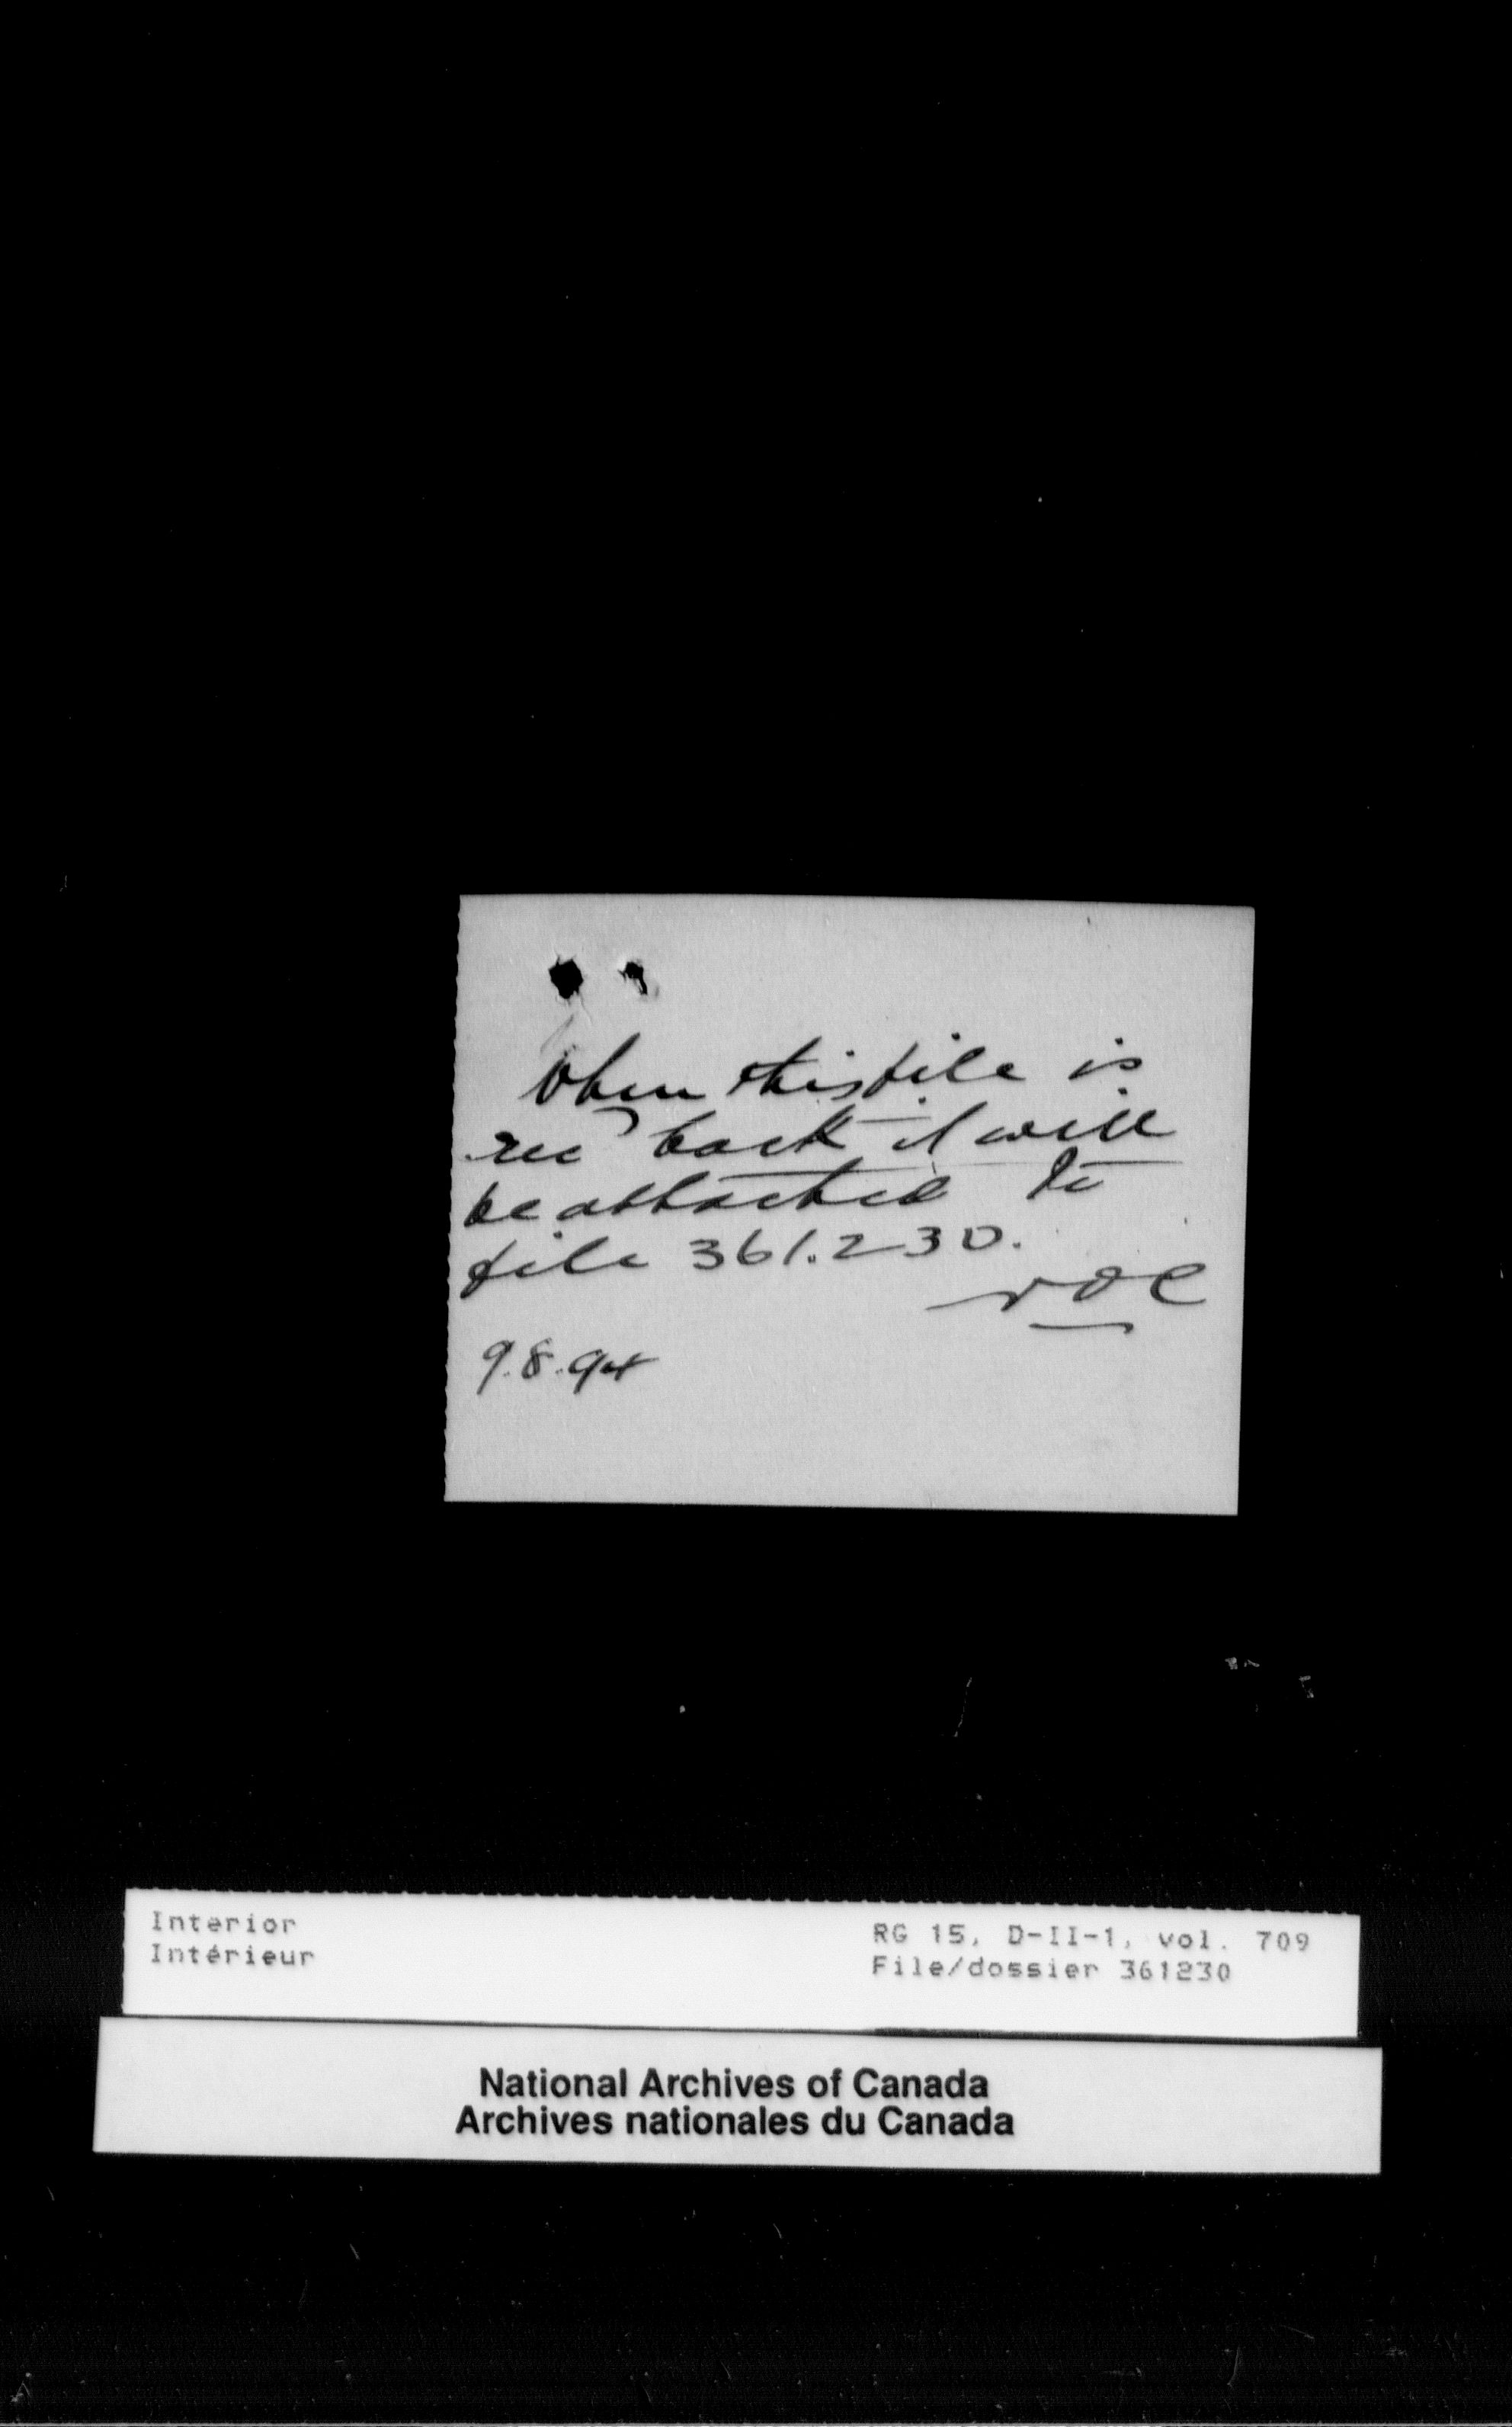 When this file is
rec'd back it will
be attached to
file 361.230.
9.8.94
Interior
Intérieur
RG 15, D-II-1, vol. 709
File/dossier 361230
National Archives of Canada
Archives nationales du Canada